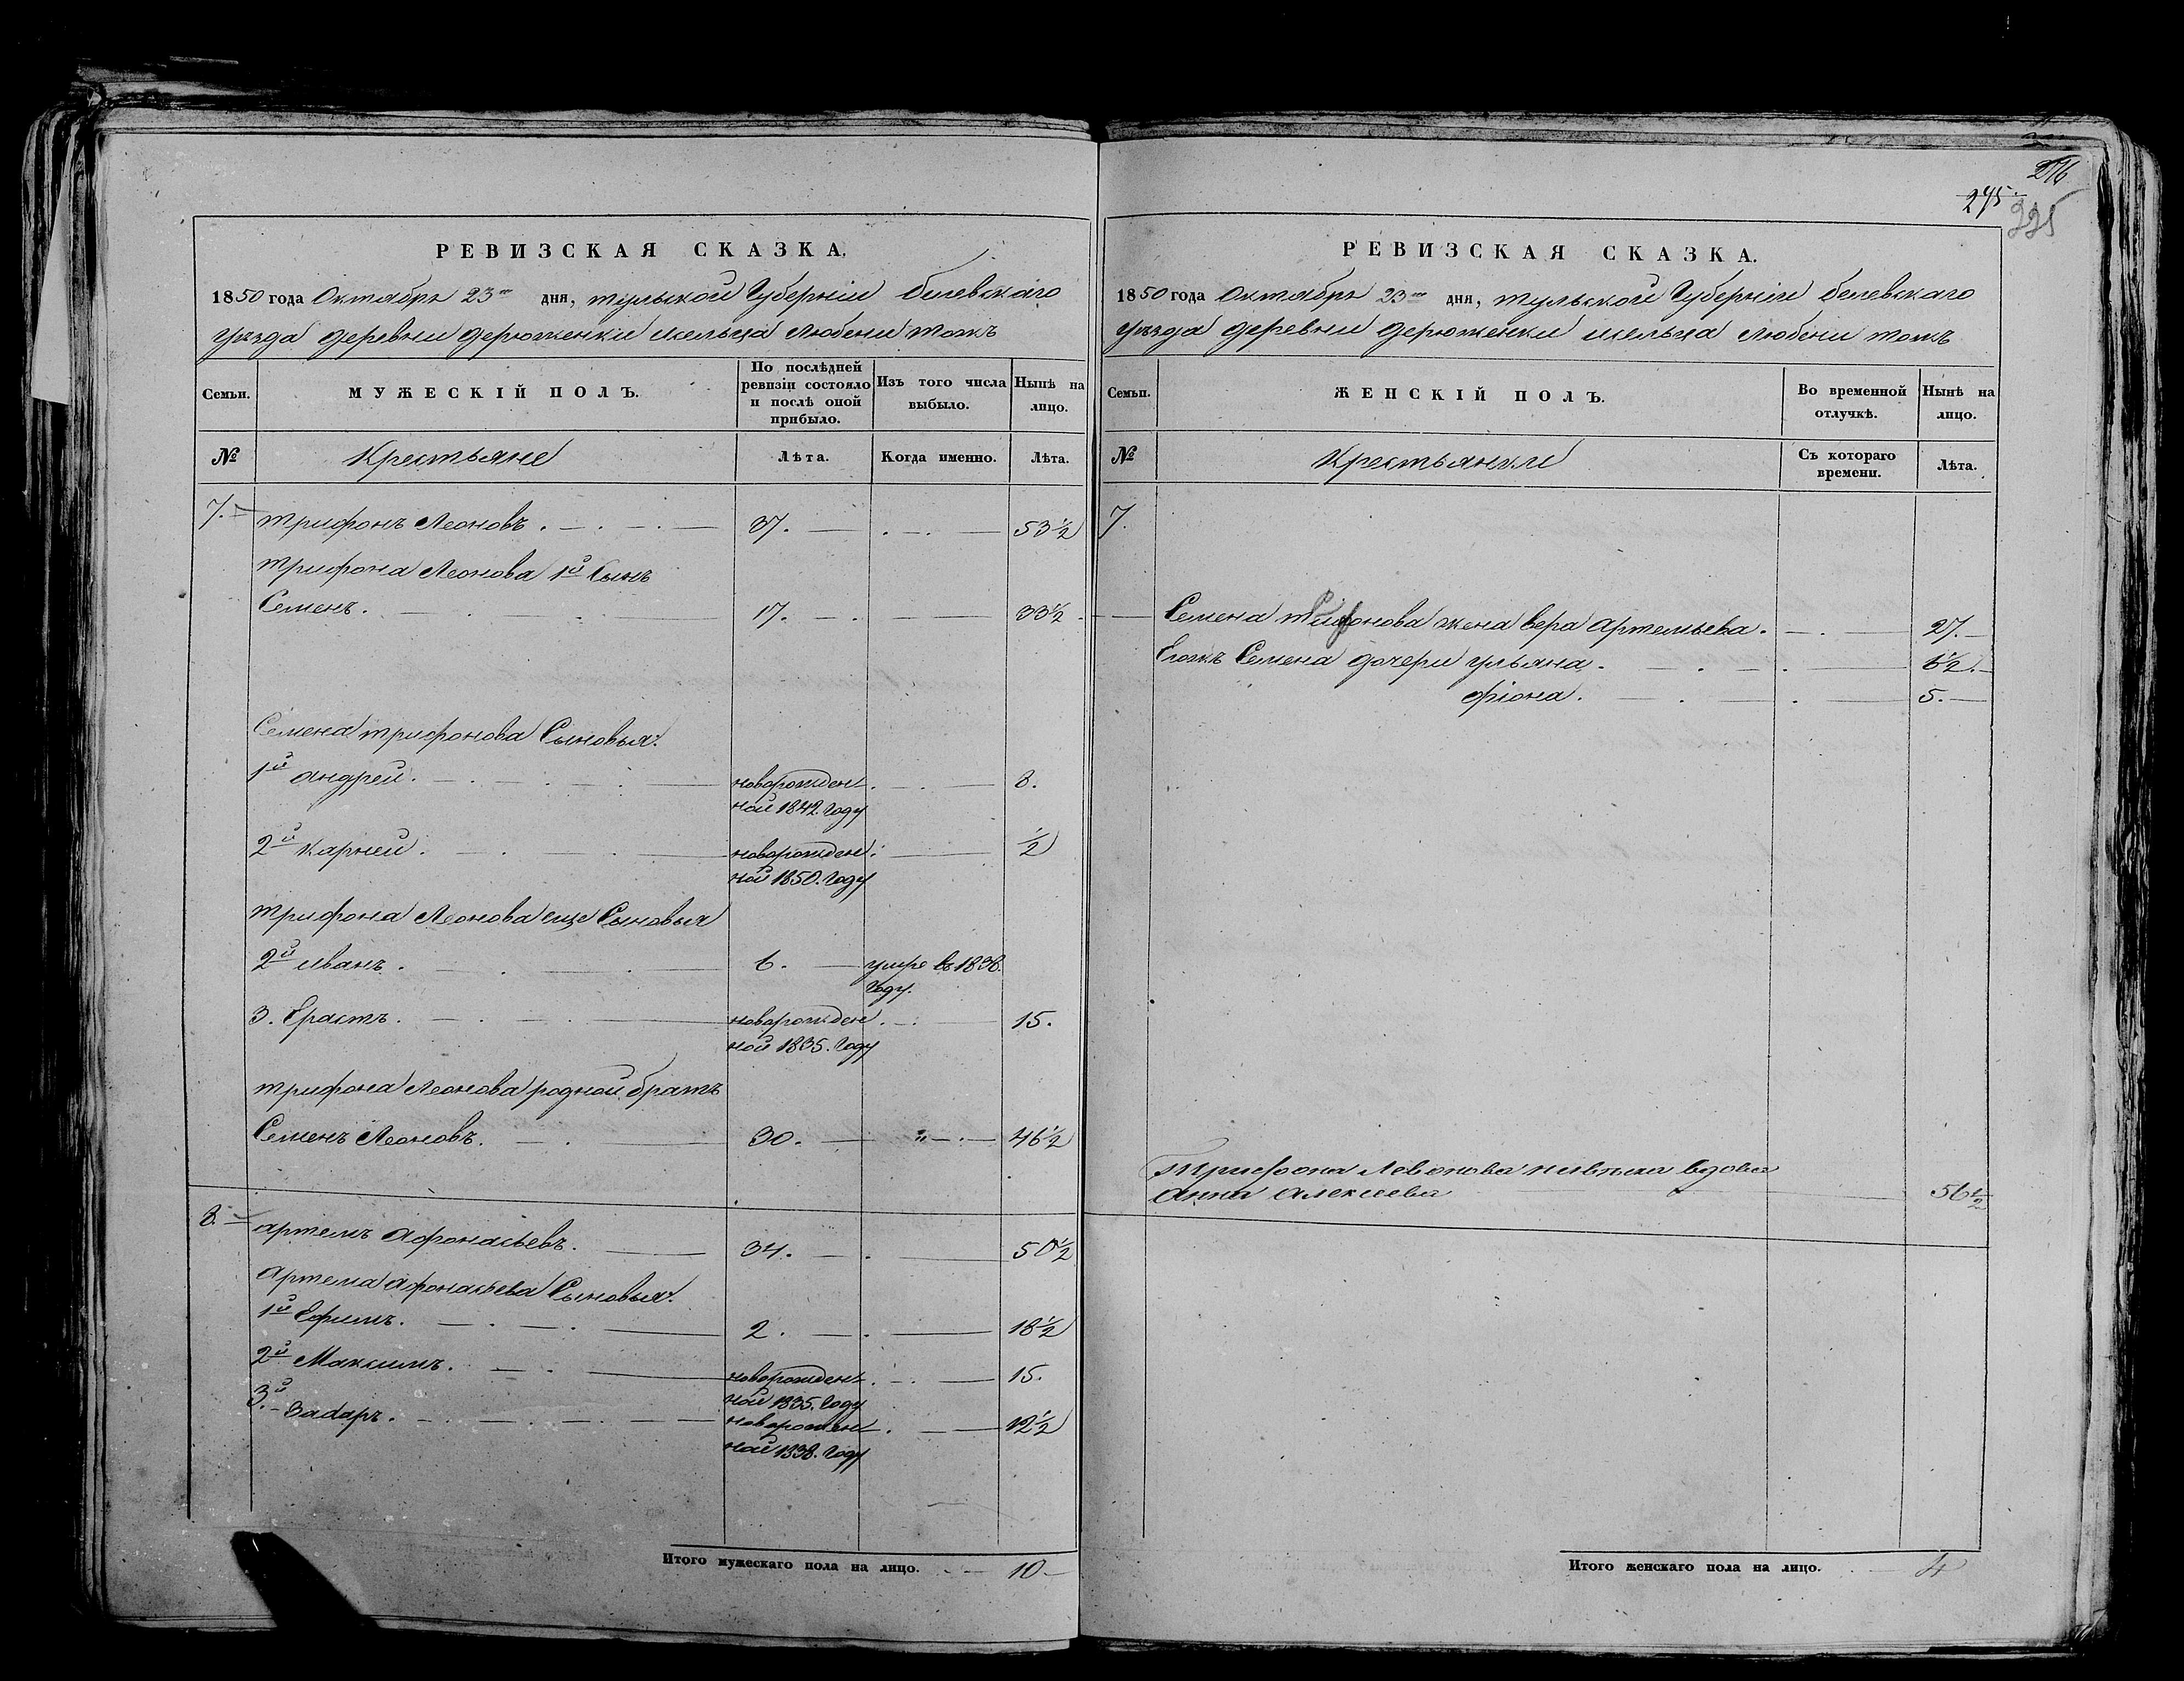 276
275.
335
РЕВИЗСКАЯ СКАЗКА.
1850 года Октября 23го дня, тульской Губерніи белевскаго
уѣзда деревни дерюженки сельца любени тожъ
Семьи.
МУЖЕСКІЙ ПОЛЪ.
По послѣдней ревизіи состояло и послѣ оной прибыло.
Изъ того числа выбыло.
Нынѣ на лицо.
№ Крестьяне Лѣта. Когда именно. Лѣта.
7. трифонъ Леоновъ. 37. 53½
трифона Леонова 1й Сынъ
Семенъ. 17. 33½
Семена трифонова Сыновья.
1й андрей. новорожден 8.
ной 1842. Году
2й карней. новорожден. ½
ной 1850. Году
трифона Леонова еще Сыновья
2й иванъ. 6. умре въ 1838.
Году.
3. Ерастъ. новорожден 15.
ной 1835. Году
трифона Леонова родной братъ
Семенъ Леоновъ. 30. " 46½
8. артемъ афонасьевъ. 34. 50½
артема афонасьева Сыновья.
1й Ефимъ. 2. 18½
2й Максимъ. новорожден 15.
ной 1835. Году
3й новорожден 12½
ной 1838. Году
Итого мужескаго пола на лицо. 10
РЕВИЗСКАЯ СКАЗКА.
1850 года Октября 23го дня, тульской Губерніи белевскаго
уѣзда деревни дерюженки сельца любени тожъ
Семьи.
ЖЕНСКІЙ ПОЛЪ.
Во временной отлучкѣ.
Нынѣ на лицо.
№ Крестьянки Съ котораго времени. Лѣта.
7.
Семена трифонова жена вера артемьева. 27.
Егожъ Семена дочери ульяна. 6½.
фіона. 5.
Трифона Левонова невѣстка вдова
анна алексеева 56½
Итого женскаго пола на лицо. 4